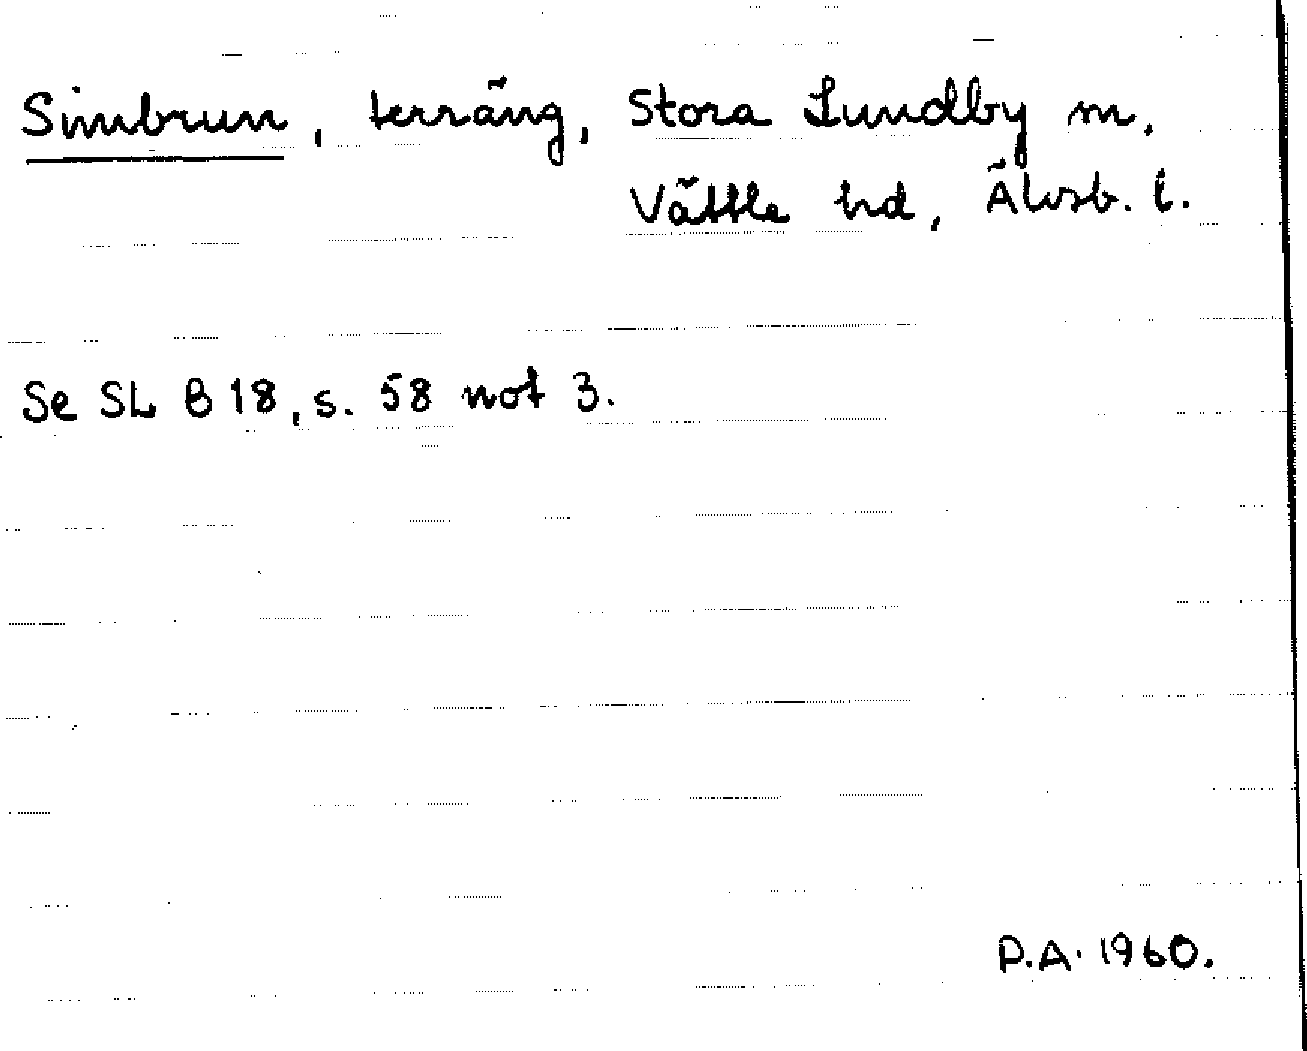 Simbrun, terräng, Stora Lundby sn,
Vättle hd, Älvsb. l.
Se SL B 18, s. 58 not 3.
P.A. 1960.